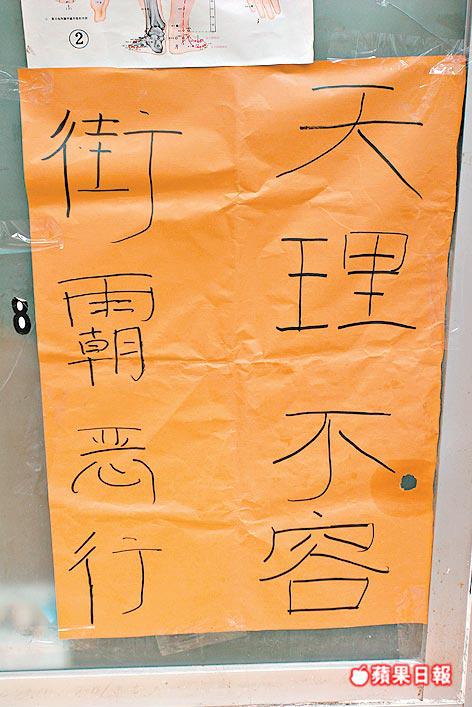 ②
天理不容
街霸恶行
8
蘋果日報